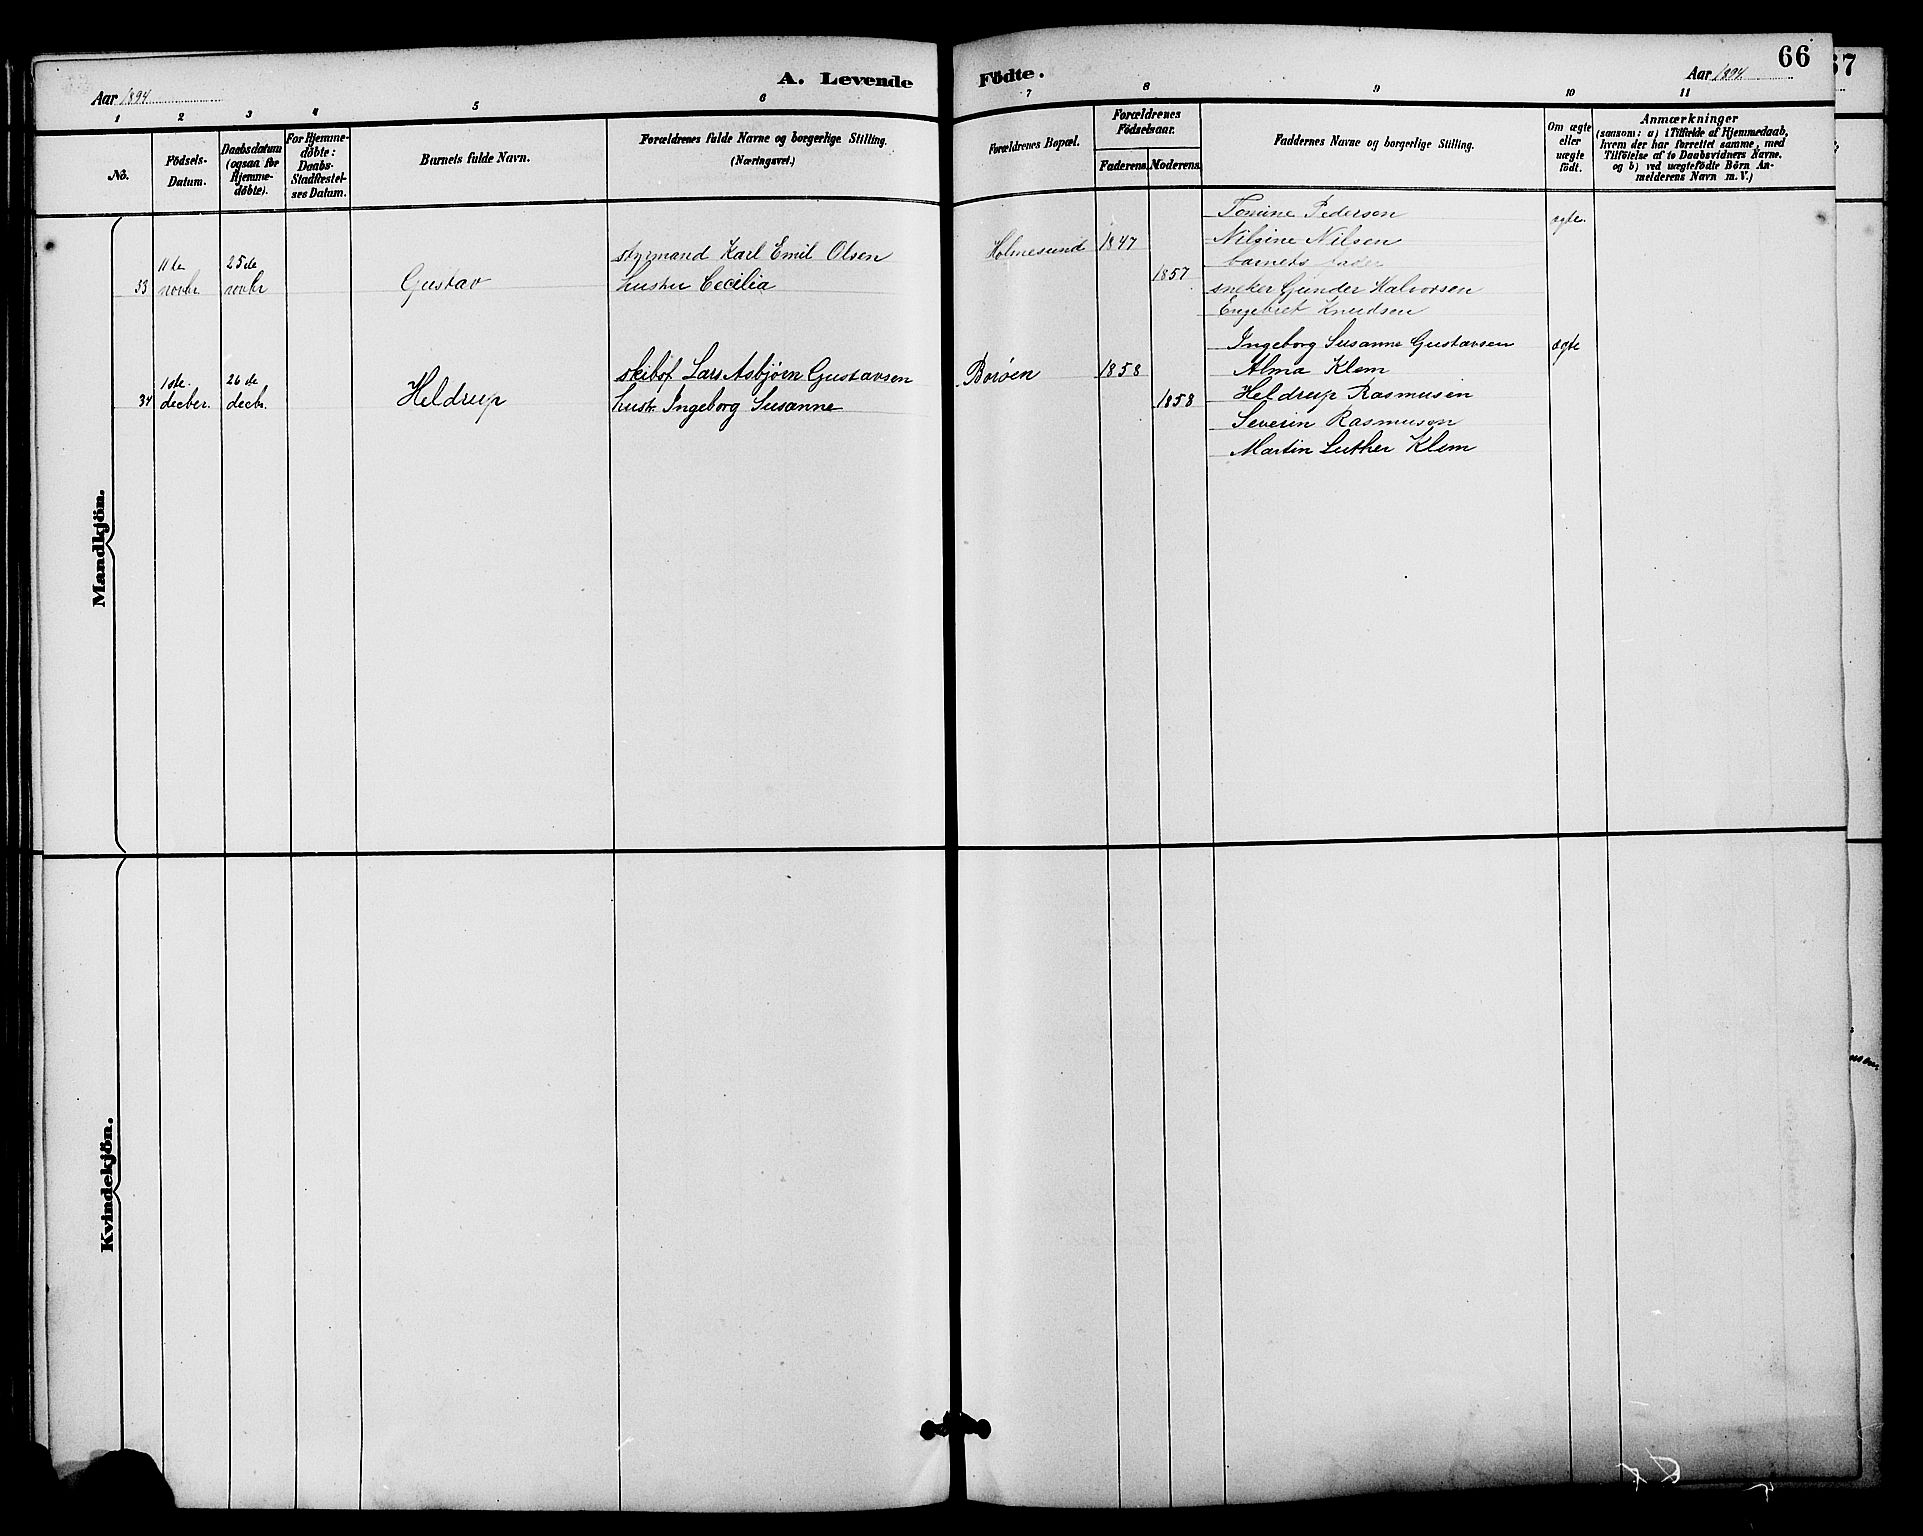 66
67
A. Levende
Födte.
Aar 1894
Aar 1894.
1
2
3
4
5
6
7
8
9
10
11
No.
Födsels-
Datum.
Daabsdatum
(ogsaa for
Hjemme-
döbte).
For Hjemme-
döbte:
Daabs-
Stadfæstel-
ses Datum.
Barnets fulde Navn.
Forældrenes fulde Navne og borgerlige Stilling.
(Næringsvei.)
Forældrenes Bopæl.
Forældrenes
Födselsaar.
Faderens.
Moderens.
Faddernes Navne og borgerlige Stilling.
Om ægte
eller
uægte
födt.
Anmærkninger
(saasom: a) i Tilfælde af Hjemmedaab,
hvem der har forrettet samme, med
Tilföielse af to Daabsvidners Navne,
og b) ved uægtefödte Börn An-
melderens Navn m. V.)
Mandkjön.
33
11te
novbr.
25de
novbr
Gustav
styrmand Karl Emil Olsen
hustru Cecilia
Holmesund
1847
1857
Tomine Pedersen
Nilsine Nilsen
barnets fader
sneker Gunder Halvorsen
Engebret Knudsen
ægte.
34
1ste.
decber.
26de
decbr.
Heldrup
skibsf. Lars Asbjørn Gustavsen
hustr. Ingeborg Susanne
Borøen
1858
1858
Ingeborg Susanne Gustavsen
Alma Klem
Heldrup Rasmusen
Severin Rasmusen
Martin Luther Klem
ægte
Kvindekjön.